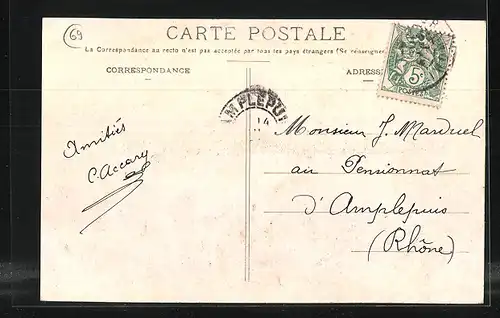 69
CARTE POSTALE
La Correspondance au recto n'est pas acceptée par tous les pays étrangers (Se renseigner
CORRESPONDANCE
ADRESSE
5c
POSTES
AMPLEPUI
14
Amitiés
C. Accary
Monsieur J. Marduel
au Pensionnat
d'Amplepuis
(Rhône)